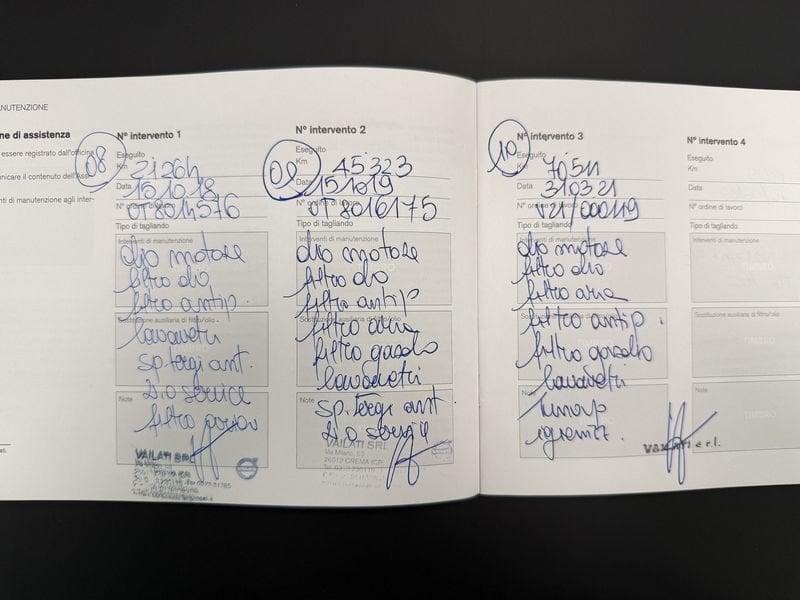 MANUTENZIONE
ne di assistenza
essere registrato dall'officina
nicare il contenuto dell'Ass
nti di manutenzione agli inter-
08
N° intervento 1
Eseguito
Km
Data 15 10 18
N° ordine di lavoro
Tipo di tagliando
Interventi di manutenzione
olio motore
filtro olio
filtro antip.
Sostituzione ausiliaria di filtro/olio
lavavetri
sp. tergi ant.
Note
filtro
VAILATI SRL
09
N° intervento 2
Eseguito
Km 45323
Data 15 10 19
N° ordine di lavoro
018016175
Tipo di tagliando
Interventi di manutenzione
olio motore
filtro olio
filtro antip
Sostituzione ausiliaria di filtro/olio
filtro aria
filtro gasolio
lavavetri
Note
sp. tergi ant.
VAILATI SRL
Via Milano, 53
26013 CREMA (CR)
10
N° intervento 3
Eseguito
Km 70511
Data 310321
N° ordine di lavoro
V21/000119
Tipo di tagliando
Interventi di manutenzione
olio motore
filtro olio
filtro aria
Sostituzione ausiliaria di filtro/olio
filtro antip.
filtro gasolio
lavavetri
Note
igienizz.
N° intervento 4
Eseguito
Km
Data
N° ordine di lavoro
Tipo di tagliando
Interventi di manutenzione
Sostituzione ausiliaria di filtro/olio
Note